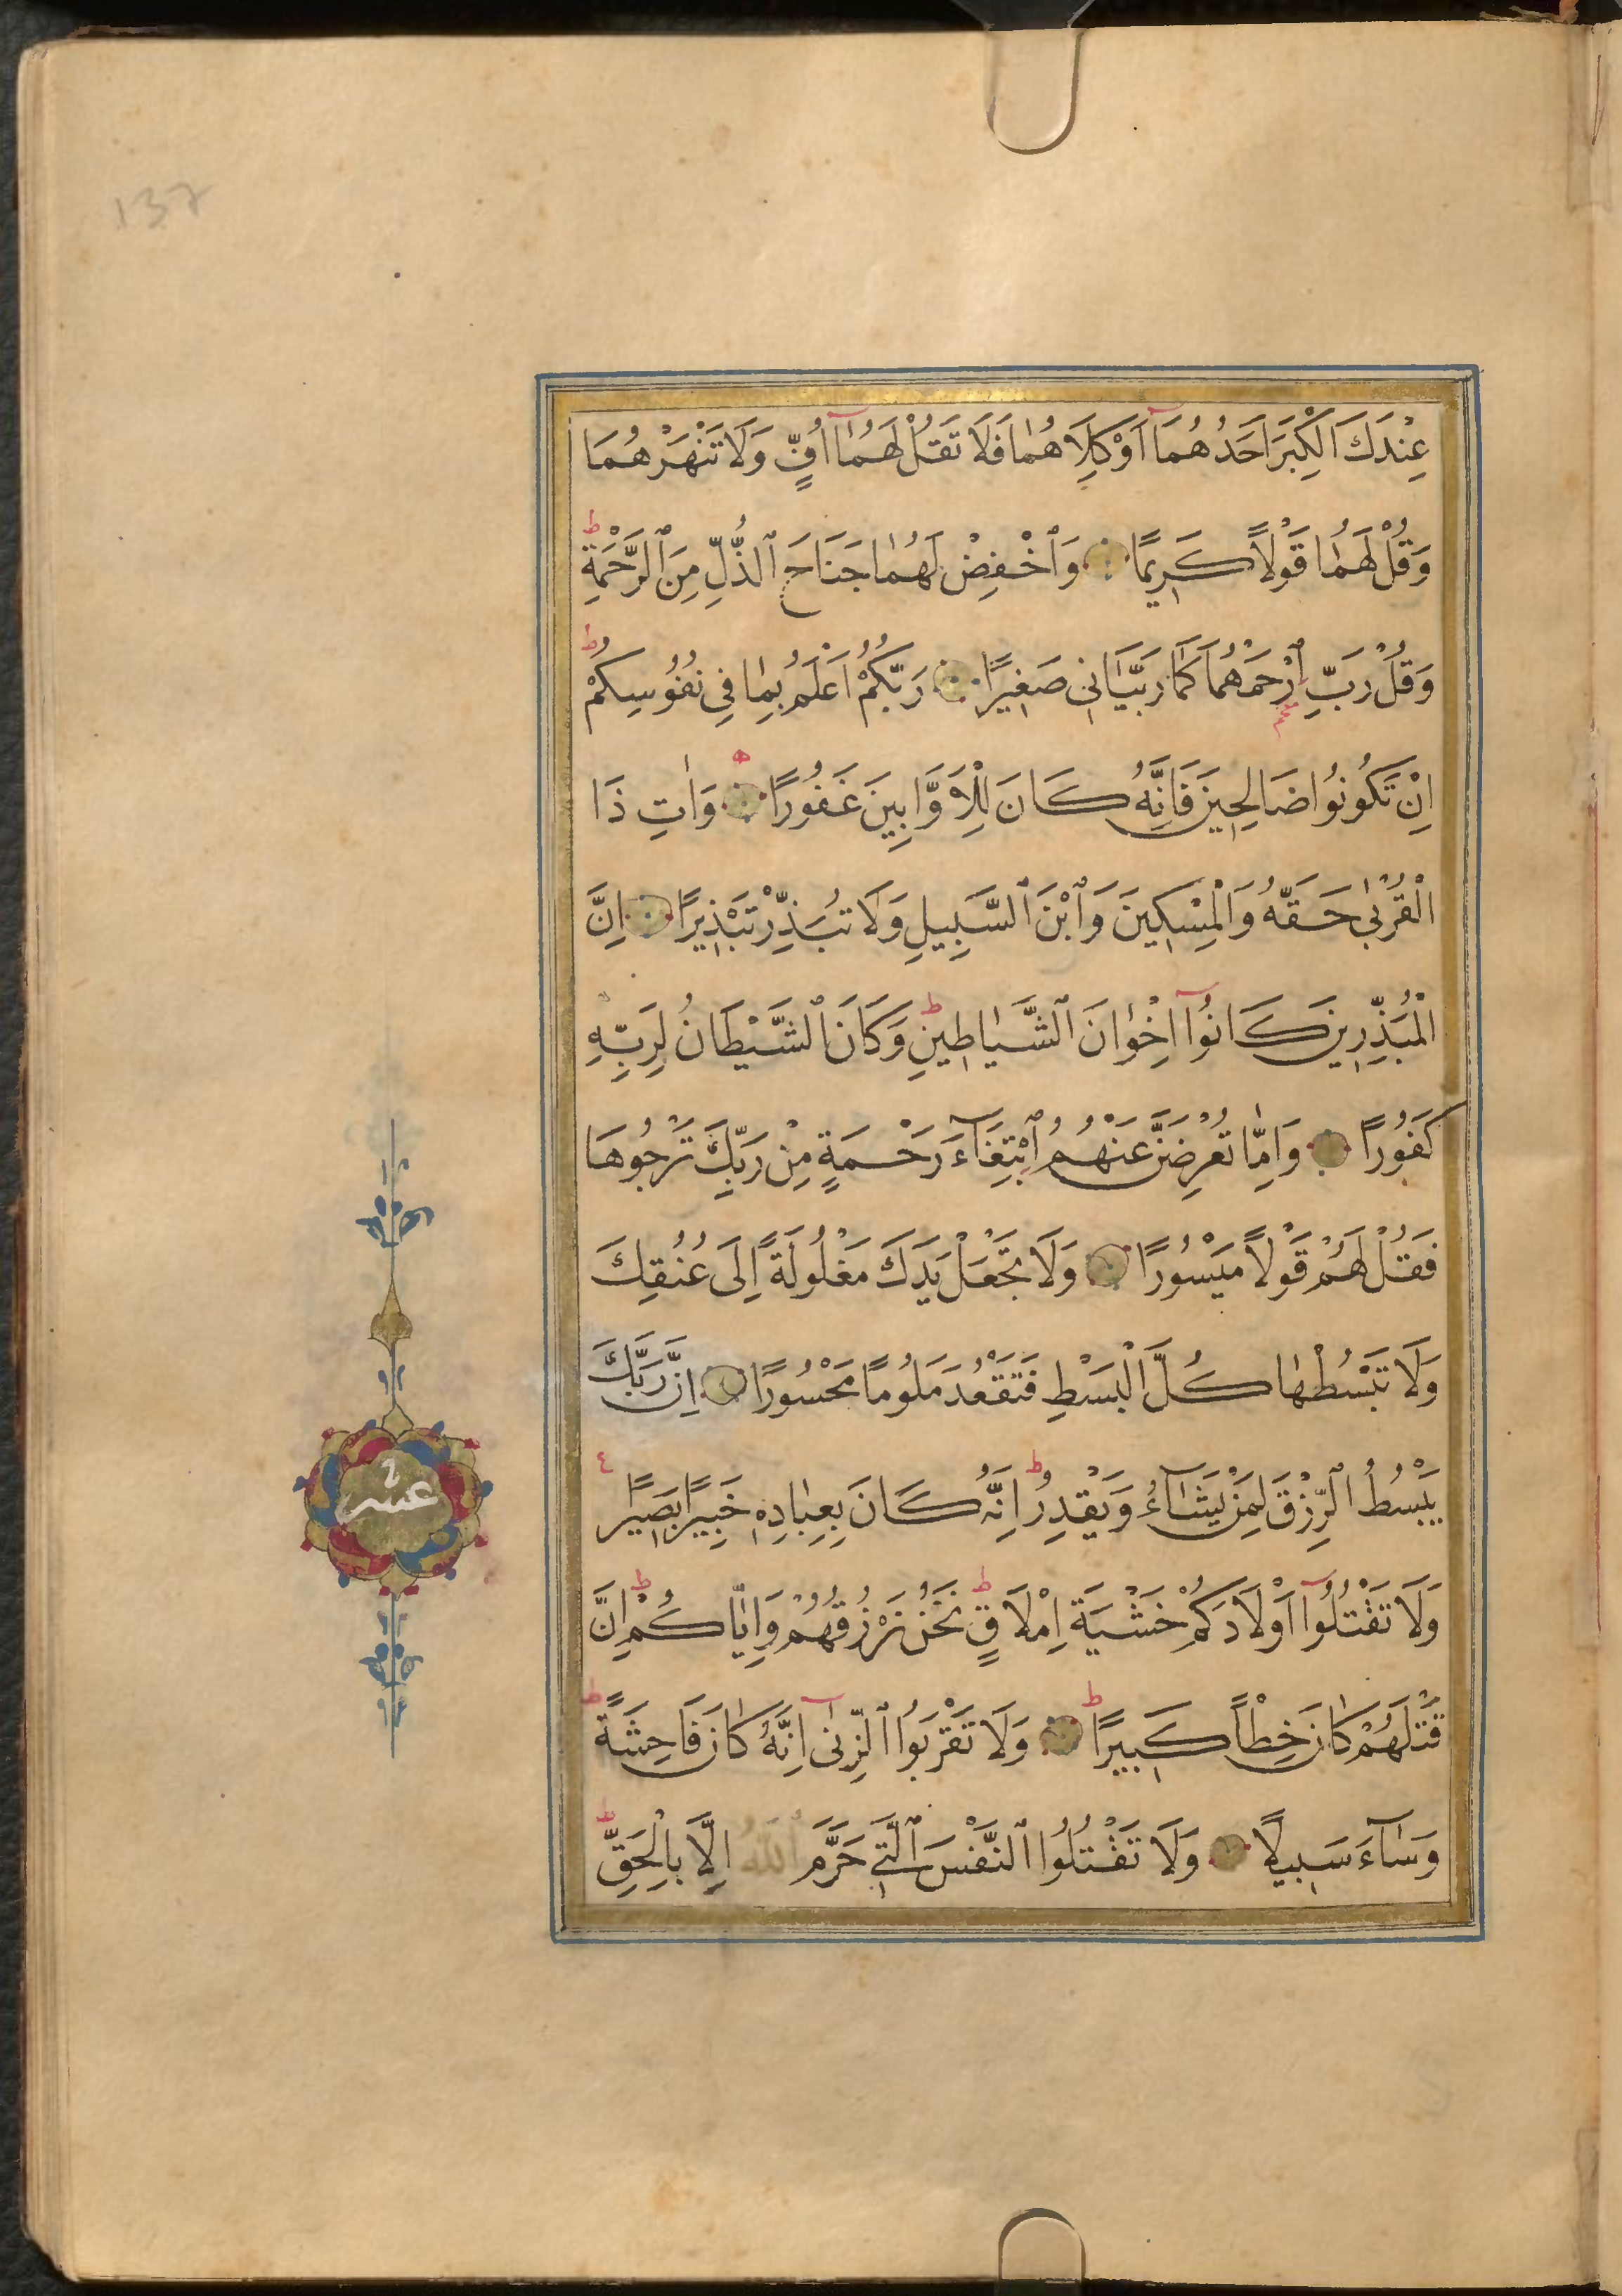 137
عِنْدَكَ الْكِبَرَ اَحَدُهُمَٓا اَوْ كِلَاهُمَا فَلَا تَقُلْ لَهُمَٓا اُفٍّ وَلَا تَنْهَرْهُمَا
وَقُلْ لَهُمَا قَوْلاً كَرِيمًا وَٱخْفِضْ لَهُمَا جَنَاحَ ٱلذُّلِّ مِنَ ٱلرَّحْمَةِ ط
وَقُلْ رَبِّ ٱرْحَمْهُمَا كَمَا رَبَّيَانِى صَغِيرًا رَبُّكُمْ اَعْلَمُ بِمَا فِى نُفُوسِكُمْ ط
اِنْ تَكُونُوا صَالِحِينَ فَاِنَّهُ كَانَ لِلْاَوَّابِينَ غَفُورًا وَاٰتِ ذَا
الْقُرْبٰى حَقَّهُ وَالْمِسْكِينَ وَٱبْنَ ٱلسَّبِيلِ وَلَا تُبَذِّرْ تَبْذِيرًا اِنَّ
الْمُبَذِّرِينَ كَانُوٓا اِخْوٰانَ ٱلشَّيَاطِينِ ط وَكَانَ ٱلشَّيْطَانُ لِرَبِّهِ
كَفُورًا وَاِمّٰا تُعْرِضَنَّ عَنْهُمُ ٱبْتِغَٓاءَ رَحْمَةٍ مِنْ رَبِّكَ تَرْجُوهَا
فَقُلْ لَهُمْ قَوْلاً مَيْسُورًا وَلَا تَجْعَلْ يَدَكَ مَغْلُولَةً اِلَى عُنُقِكَ
وَلَا تَبْسُطْهٰا كُلَّ الْبَسْطِ فَتَقْعُدَ مَلُومًا مَحْسُورًا اِنَّ رَبَّكَ
يَبْسُطُ ٱلرِّزْقَ لِمَنْ يَشَٓاءُ وَيَقْدِرُ ط اِنَّهُ كَانَ بِعِبٰادِهِ خَبِيرًا بَصِيرًا
وَلَا تَقْتُلُوٓا اَوْلَادَكُمْ خَشْيَةَ اِمْلَاقٍ ط نَحْنُ نَرْزُقُهُمْ وَاِيّٰاكُمْ ط اِنَّ
قَتْلَهُمْ كَانَ خِطْاً كَبِيرًا ط وَلَا تَقْرَبُوا ٱلزِّنٰٓى اِنَّهُ كَانَ فَاحِشَةً ط
وَسَٓاءَ سَبِيلاً وَلَا تَقْتُلُوا ٱلنَّفْسَ ٱلَّتِى حَرَّمَ ٱللّٰهُ اِلَّا بِالْحَقِّ ط
عشر